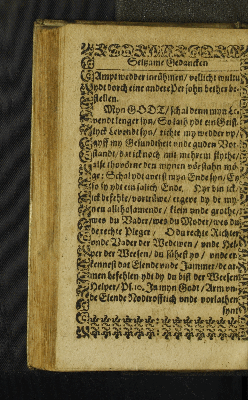 Seltzame Gedancken
Ampt wedder inrühmen / velicht würt
ydt dorch eine andere Person bether be-
stellen.
Myn GODT / schal denn myn Le-
vendt lenger syn / So lath ydt ein Geist-
lyck Levendt syn / richte my wedder up /
gyff my Gesundtheit unde guden Vor-
standt / dat ick noch mit mehrem flythe /
alse thovöne den mynen vörstahn mö-
ge: Schal ydt averst myn Ende syn / La
so sy ydt ein salich Ende. Nye bin ick /
ick befehle / vortruwe / ergeve dy de my-
nen allthosamende / klein unde grothe /
wes du Vader / wes du Moder / wes du
de rechte Pleger / O du rechte Richter
unde Vader der Wedewen / unde Hel-
per der Weesen / du sühest yo / unde er-
kennest dat Elende unde Jammer / de ar-
men befehlen ydt dy du bist der Weesen
Helper / Ps. 10. Ja myn Godt / Arm un-
de Elende Nodtrofftich unde vorlathen
synt